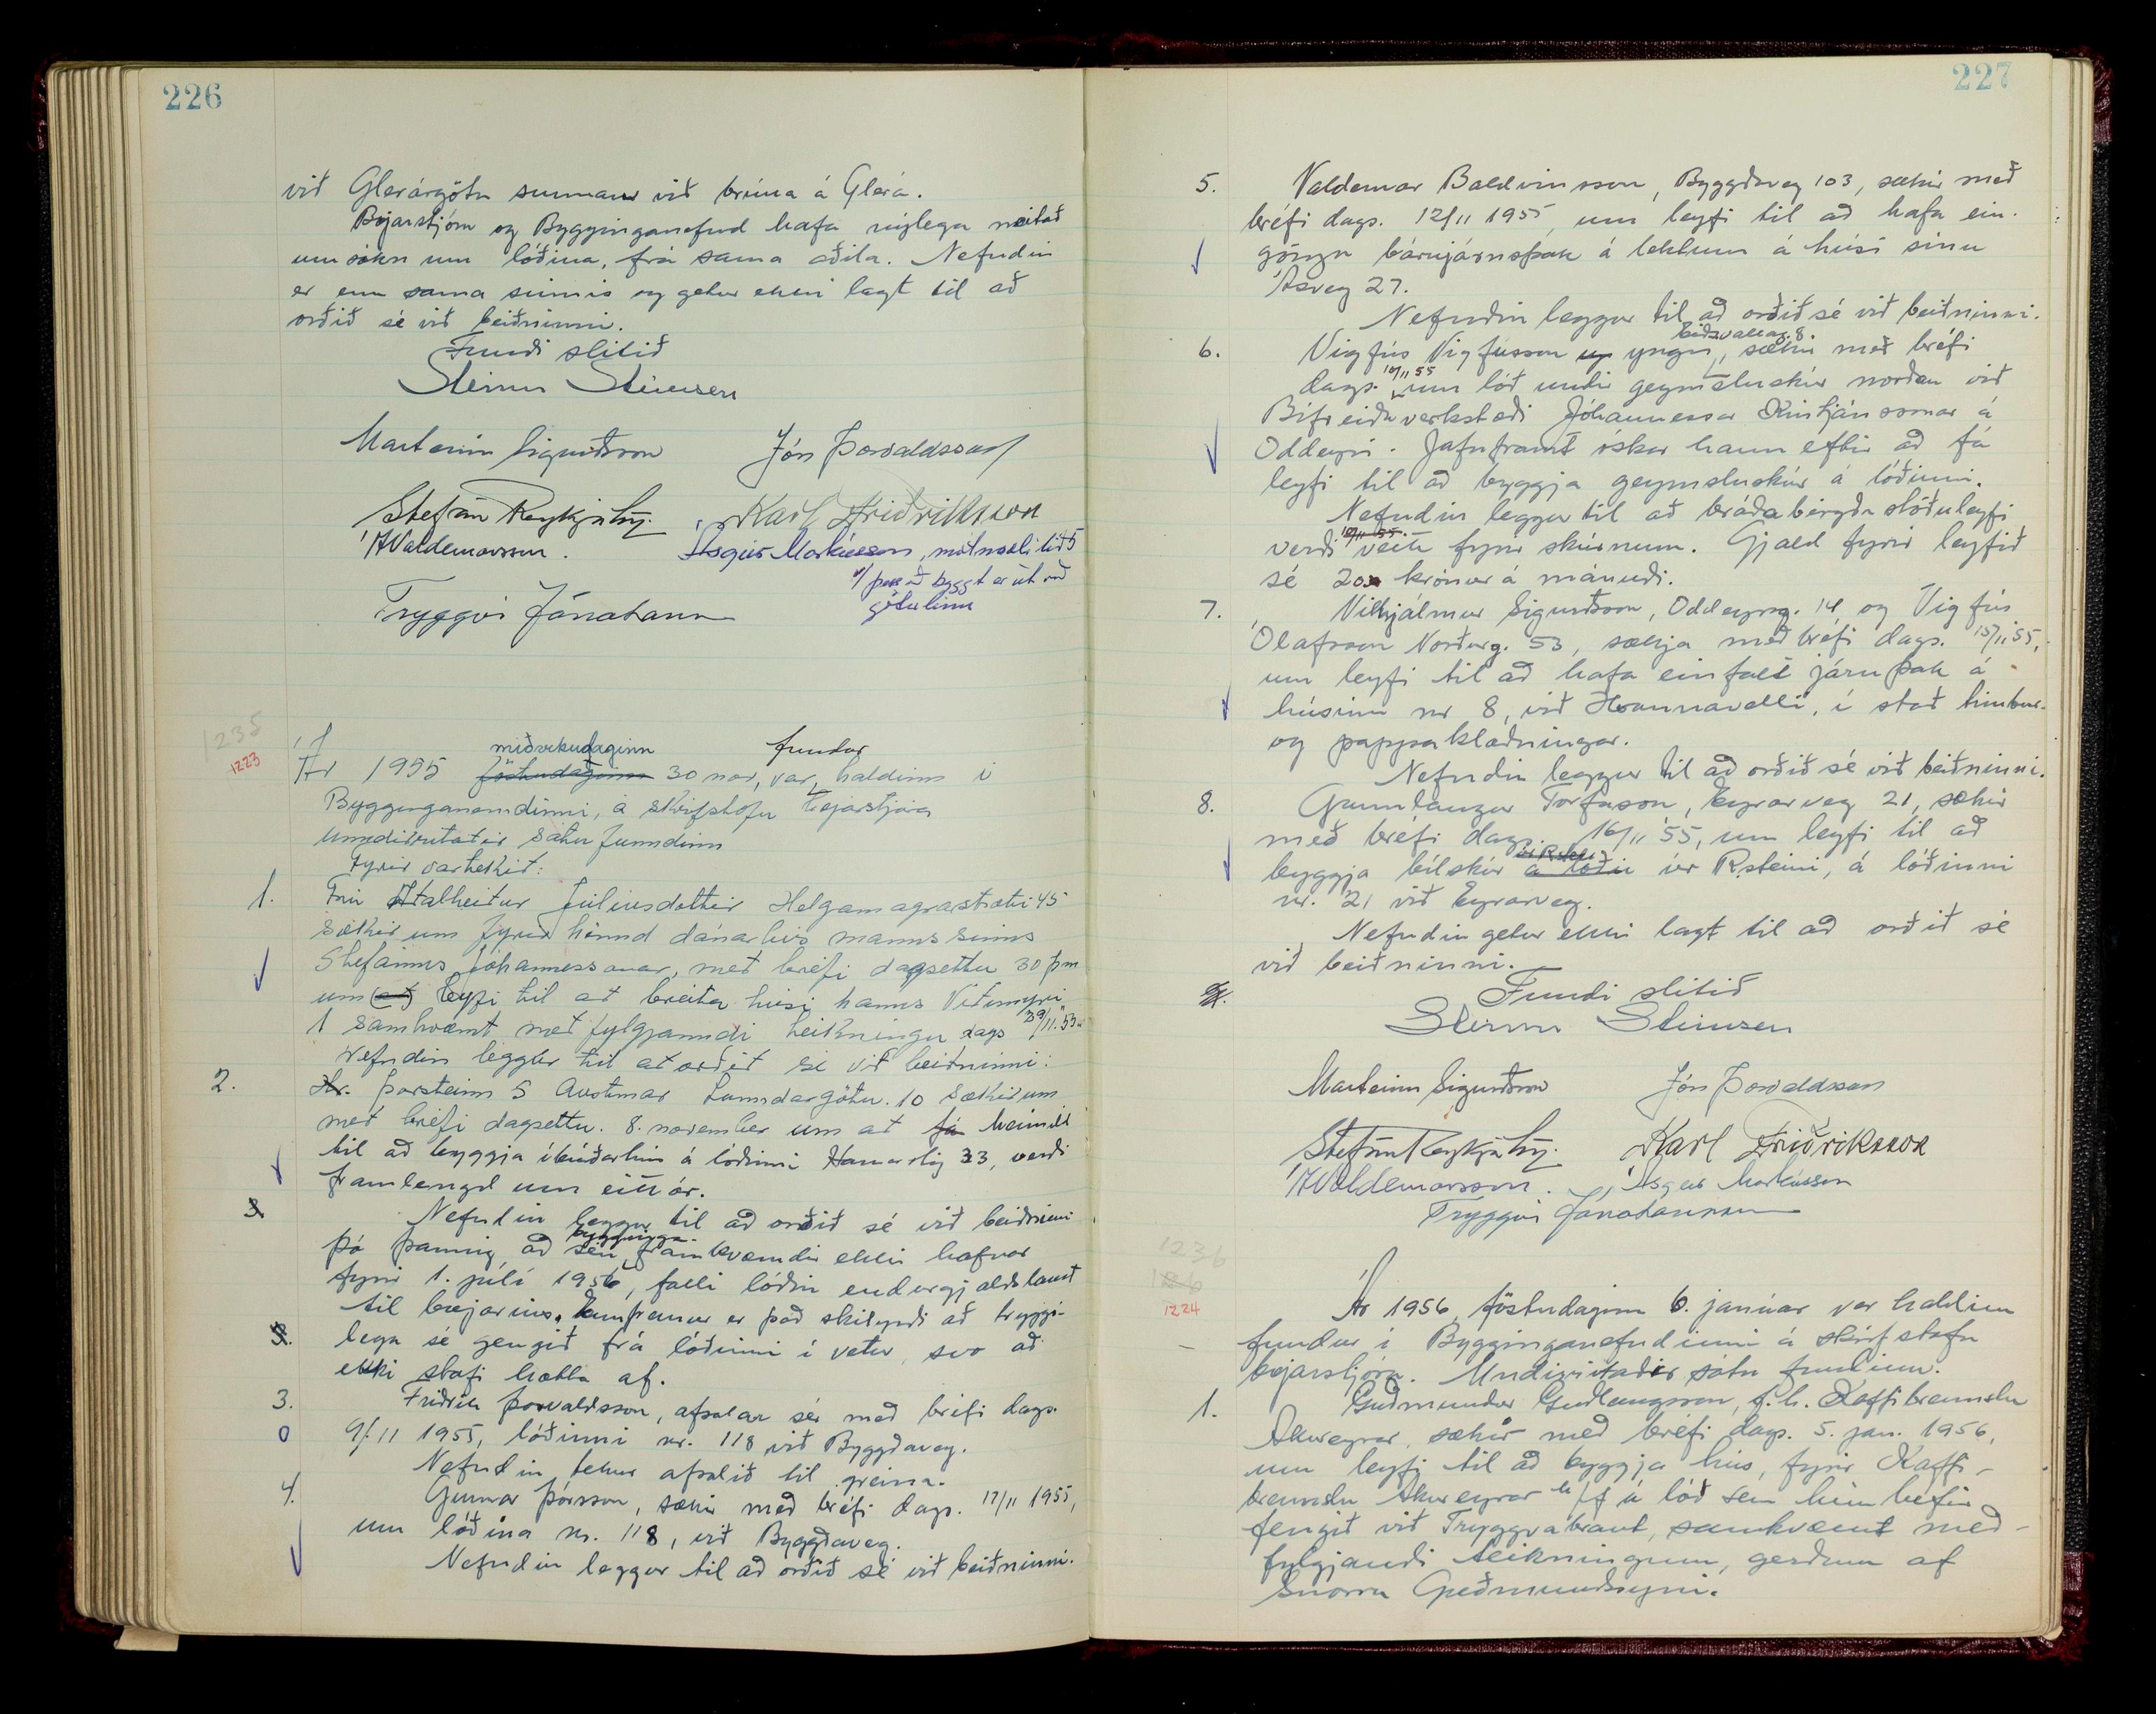 226
við Glerárgötu sunnan við brúna á Glerá.
Bæjarstjórn og Bygginganefnd hafa nýlega neitað
umsókn um lóðina, frá sama aðila. Nefndin
er enn sama sinnis og getur ekki lagt til að
orðið sé við beiðninni.
Fundi slitið
Steinn Steinsen
Marteinn Sigurðsson Jón Þorvaldsson
Stefán Reykjalín. Karl Friðriksson
ÁValdemarsson. Ásgeir Markússon, mótmæli lið 5
v/ þess að byggt er út við
götulínu
Tryggvi Jónatansson
1235
1223
Ár 1955 föstudaginn miðvikudaginn 30 nov, var fundur haldinn í
Bygginganemdinni, á skrifstofu bæjarstjóra
undirritaðir sátu funndinn
Fyrir var tekið:
1. Frú Aðalheiður Júlíusdóttir Helgamagrastræti 45
sækir um fyrir hönd dánarbús manns sinns
Stefánns Jóhannessonar, með bréfi dagsettu 30 þm
um (at) leyfi til at breita húsi hanns Víðimýri
1 samkvæmt með fylgjanndi teikningu dags 29/11.55.
Nefndin leggur til at orðit sé við beiðninni:
2. Hr. Þorsteinn S Austmar Lunndargötu. 10 sækir um
með bréfi dagsettu. 8. november um at fá heimild
til að byggja íbúðarhús á lóðinni Hamarstíg 33, verði
framlengd um eitt ár.
3. Nefndin leggur til að orðið sé við beiðninni
þó þannig að séu bygginga framkvæmdir ekki hafnar
fyrir 1. júlí 1956, falli lóðin endurgjaldslaust
til bæjarins. Ennfremur er það skilyrði að tryggi-
3. lega sé gengið frá lóðinni í vetur, svo að
ekki stafi hætta af.
3. Friðrik Þorvaldsson, afsalar sér með bréfi dags.
0 9/11 1955, lóðinni nr. 118 við Byggðaveg.
Nefndin tekur afsalið til greina.
4. Gunnar Þórsson, sækir með bréfi dags. 17/11 1955,
um lóðina nr. 118, við Byggðaveg.
Nefndin leggur til að orðið sé við beiðninni.
227
5. Valdemar Baldvinsson, Byggðaveg 103, sækir með
bréfi dags. 12/11 1955 um leyfi til að hafa ein-
göngu bárujárnsþak á lektum á húsi sínu
Ásveg 27.
Nefndin leggur til að orðið sé við beiðninni.
6. Vigfús Vigfússon yngri, Eiðsvallag. 8 sækir með bréfi
dags. 10/11 55 um lóð undir geymsluskúr norðan við
Bifreiðaverkstæði Jóhannesar Kristjánssonar á
Oddeyri. Jafnframt óskar hann eftir að fá
leyfi til að byggja geymsluskúr á lóðinni.
Nefndin leggur til að bráðabirgða stöðuleyfi
verði 10/11 55 veitt fyrir skúrnum. Gjald fyrir leyfið
sé 20 krónur á mánuði.
7. Vilhjálmur Sigurðsson, Oddeyrarg. 14 og Vigfús
Ólafsson Norðurg. 53, sækja með bréfi dags. 15/11 '55,
um leyfi til að hafa einfalt járnþak á
húsinu nr 8, við Hvannavelli, í stað timbur-
og pappaklæðningar.
Nefndin leggur til að orðið sé við beiðninni.
8. Gunnlaugur Torfason, Eyrarveg 21, sækir
með bréfi dags. 16/11 '55, um leyfi til að
byggja bílskúr á lóðu úr Rsteini úr R.steini, á lóðinni
nr. 21 við Eyrarveg.
Nefndin getur ekki lagt til að orðið sé
við beiðninni.
Fundi slitið
Steinn Steinsen
Marteinn Sigurðsson Jón Þorvaldsson
Stefán Reykjalín. Karl Friðriksson
ÁValdemarsson. Ásgeir Markússon
Tryggvi Jónatansson
1236
1224
Ár 1956, föstudaginn 6. janúar var haldinn
fundur í Bygginganefndinni á skrifstofu
bæjarstjóra. Undirritaðir sátu fundinn.
1. Guðmundur Guðlaugsson, f.h. Kaffibrennslu
Akureyrar, sækir með bréfi dags. 5. jan. 1956,
um leyfi til að byggja hús, fyrir Kaffi-
brennslu Akureyrar h/f á lóð sem hún hefir
fengið við Tryggvabraut, samkvæmt með-
fylgjandi teikningum, gerðum af
Snorra Guðmundssyni.